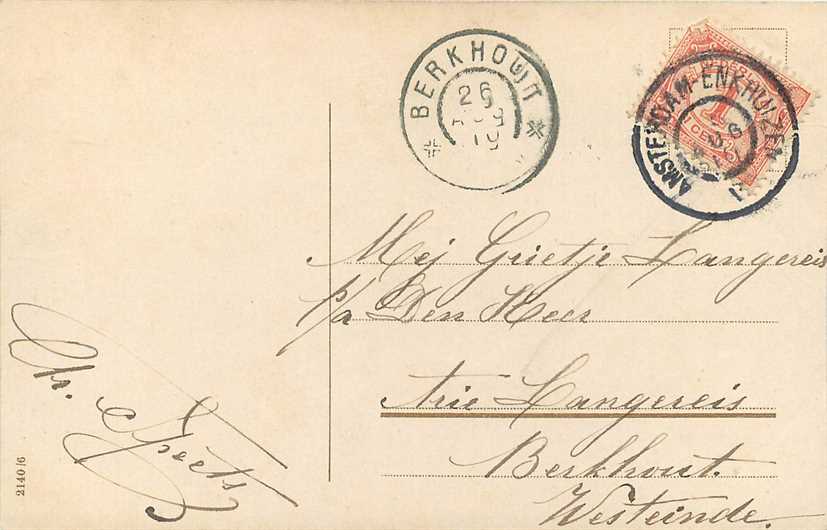 BERKHOUT
26
9
AUG
10
AMSTERDAM-ENKHUIZEN
1
CENT
Mej Grietje Langereis
p/a Den Heer
Arie Langereis
Berkhout.
Westeinde.
Chr. Speets
2140/6